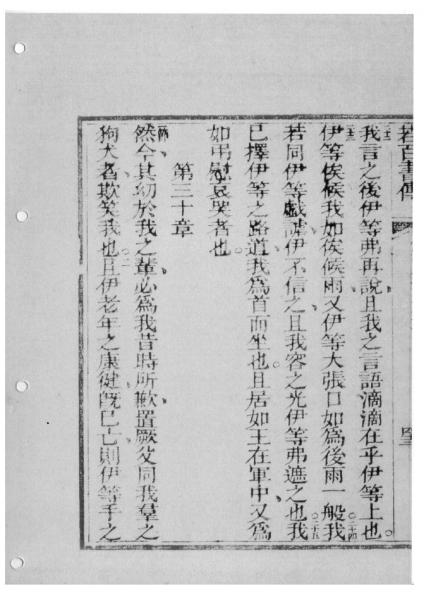 若百書傳
四三
我言之後伊等弗再說且我之言語滴滴在乎伊等上也
伊等俟候我如俟候雨又伊等大張口如為後雨一般我
若同伊等戲謔伊不信之且我容之光伊等弗遮之也我
已擇伊等之路道我為首而坐也且居如王在軍中又為
如弔慰哀哭者也
第三十章
然今其幼於我之輩必為我昔時所歉置厥父同我羣之
狗犬者欺笑我也且伊老年之康健既已亡則伊等手之